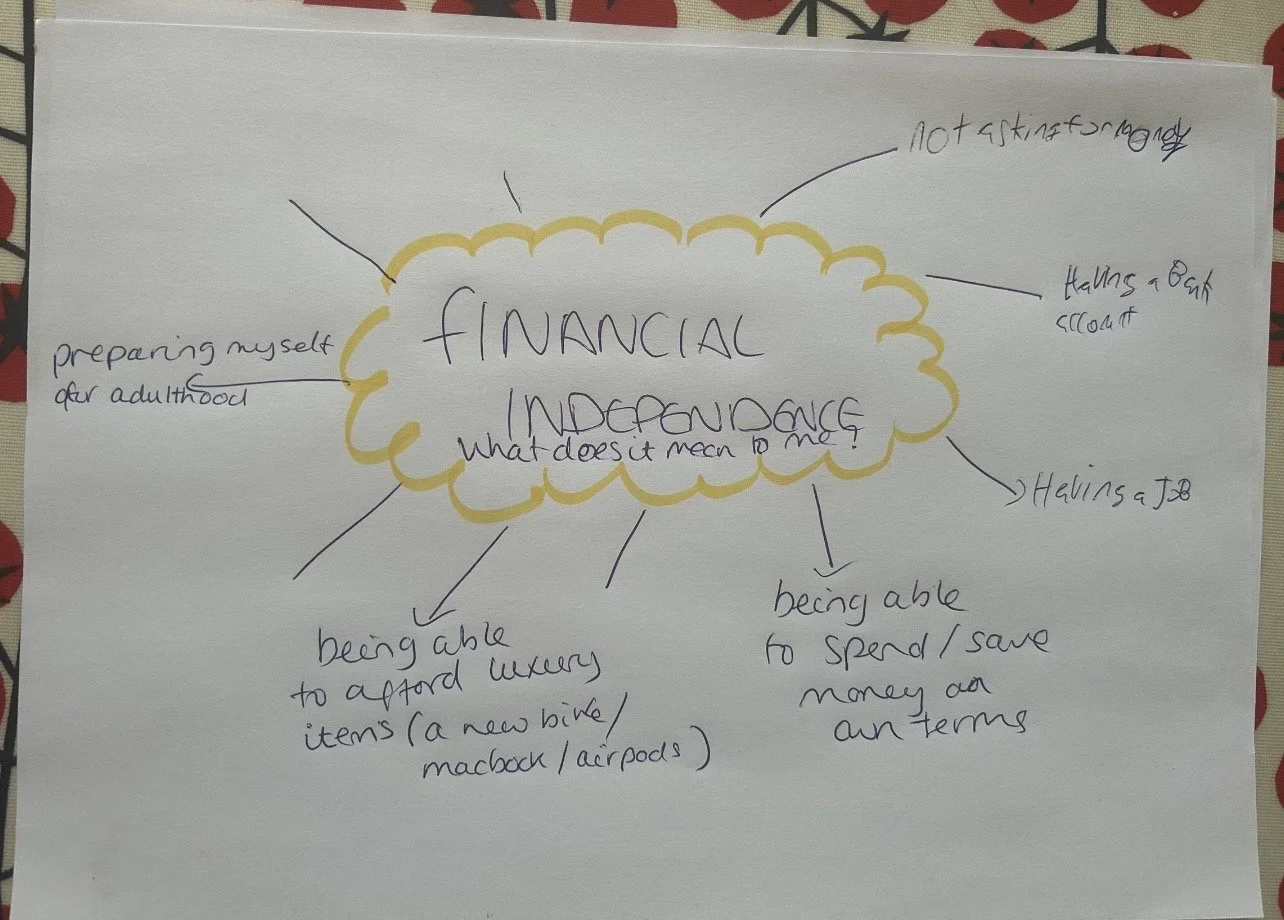 FINANCIAL
INDEPENDENCE
What does it mean to me?
not asking for money
Having a Bank
account
Having a JOB
being able
to spend/save
money on
own terms
being able
to afford luxury
items (a new bike/
macbook/airpods)
preparing myself
for adulthood